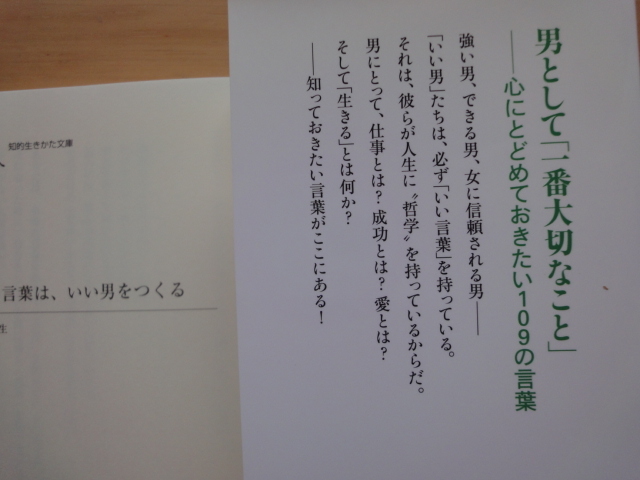 男として「一番大切なこと」
――心にとどめておきたい109の言葉
強い男、できる男、女に信頼される男――
「いい男」たちは、必ず「いい言葉」を持っている。
それは、彼らが人生に〝哲学〟を持っているからだ。
男にとって、仕事とは？ 成功とは？ 愛とは？
そして「生きる」とは何か？
――知っておきたい言葉がここにある！
知的生きかた文庫
言葉は、いい男をつくる
生